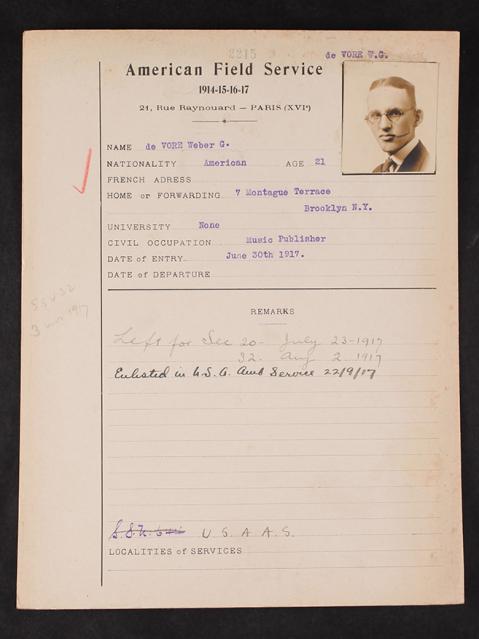 2215
de VORE W.G.
American Field Service
1914-15-16-17
21, Rue Raynouard — PARIS (XVIe)
NAME de VORE Weber G.
NATIONALITY American AGE 21
FRENCH ADRESS
HOME or FORWARDING 7 Montague Terrace
Brooklyn N.Y.
UNIVERSITY None
CIVIL OCCUPATION Music Publisher
DATE of ENTRY June 30th 1917.
DATE of DEPARTURE
SSU 32
3 1917
REMARKS
Left for Sec 20- July 23-1917
32- Aug 2. 1917
Enlisted in U.S.A. Amb Service 22/9/17
S.S.U. U.S.A.A.S.
LOCALITIES of SERVICES